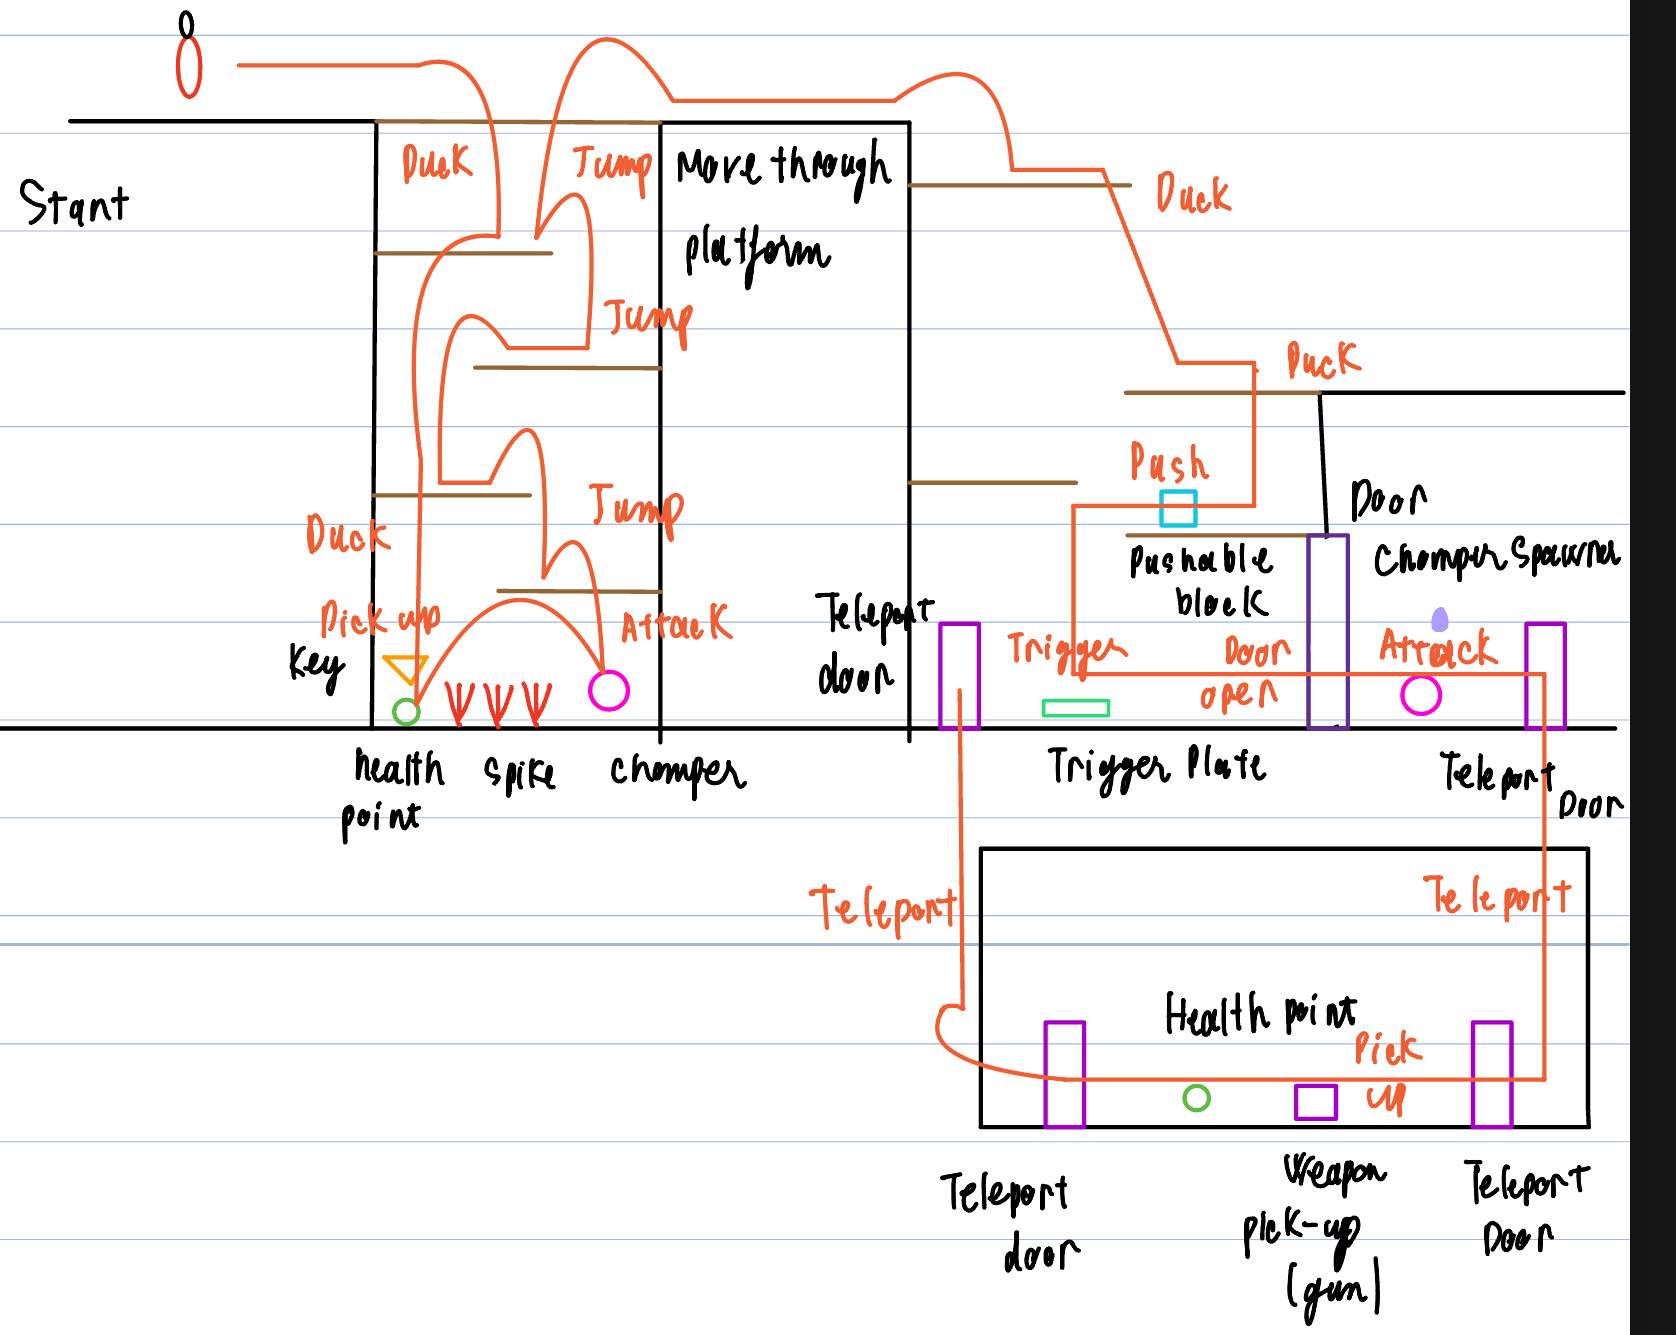 Duck
Jump
Move through
platform
Start
Duck
Jump
Duck
Push
Jump
Door
Duck
Pushable
block
Chomper Spawner
Pick up
Key
Attack
Teleport
door
Trigger
Door
open
Attack
health
point
spike
chomper
Trigger Plate
Teleport
Door
Teleport
Teleport
Health point
Pick
up
Teleport
door
Weapon
pick-up
(gun)
Teleport
Door